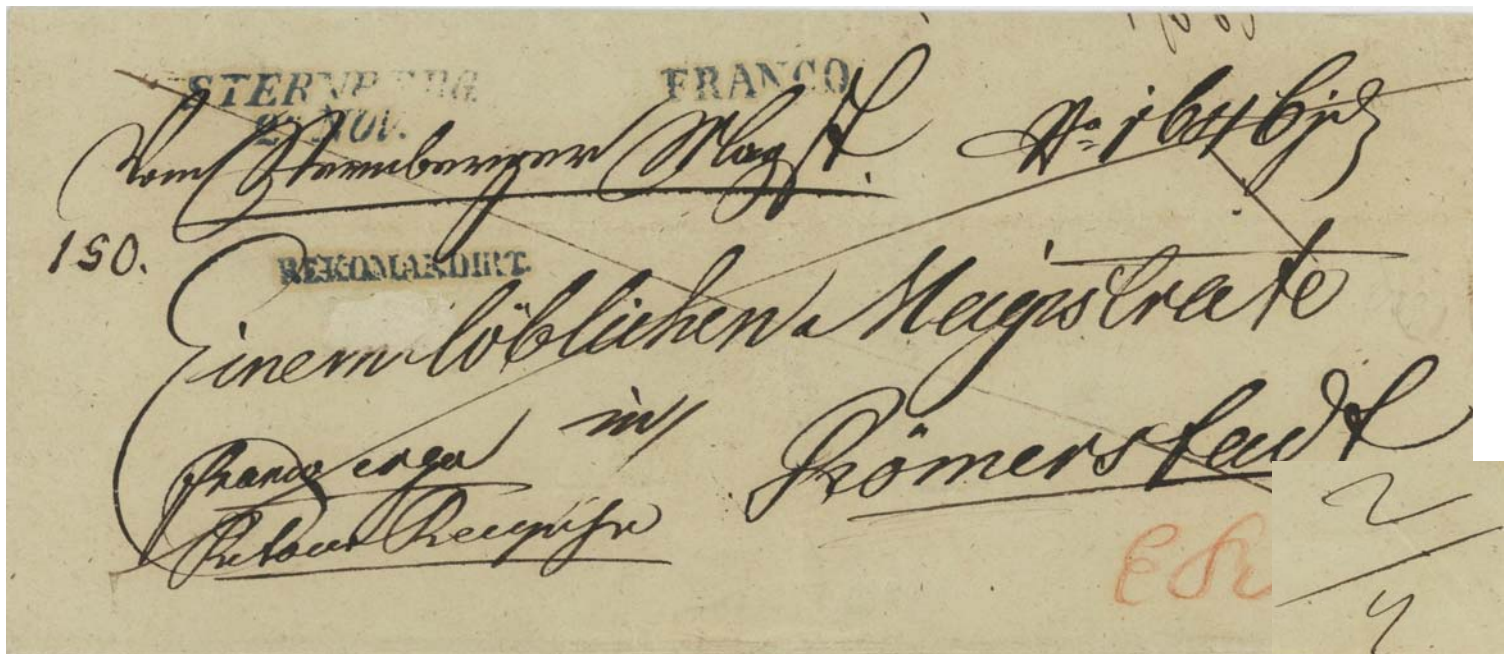 STERNBERG FRANCO
2 NOV.
Vom Sternberger Mag
150.
REKOMANDIRT.
Einem löblichen Magistrate
in
Römerstadt
Franco erga
Retour Recepisse
2
4